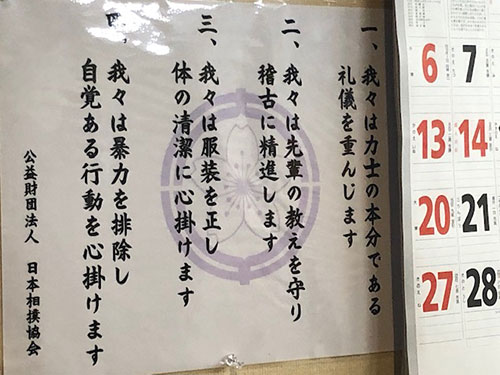 一、我々は力士の本分である
礼儀を重んじます
二、我々は先輩の教えを守り
稽古に精進します
三、我々は服装を正し
体の清潔に心掛けます
四、我々は暴力を排除し
自覚ある行動を心掛けます
公益財団法人 日本相撲協会
6 7
13 14
20 21
27 28